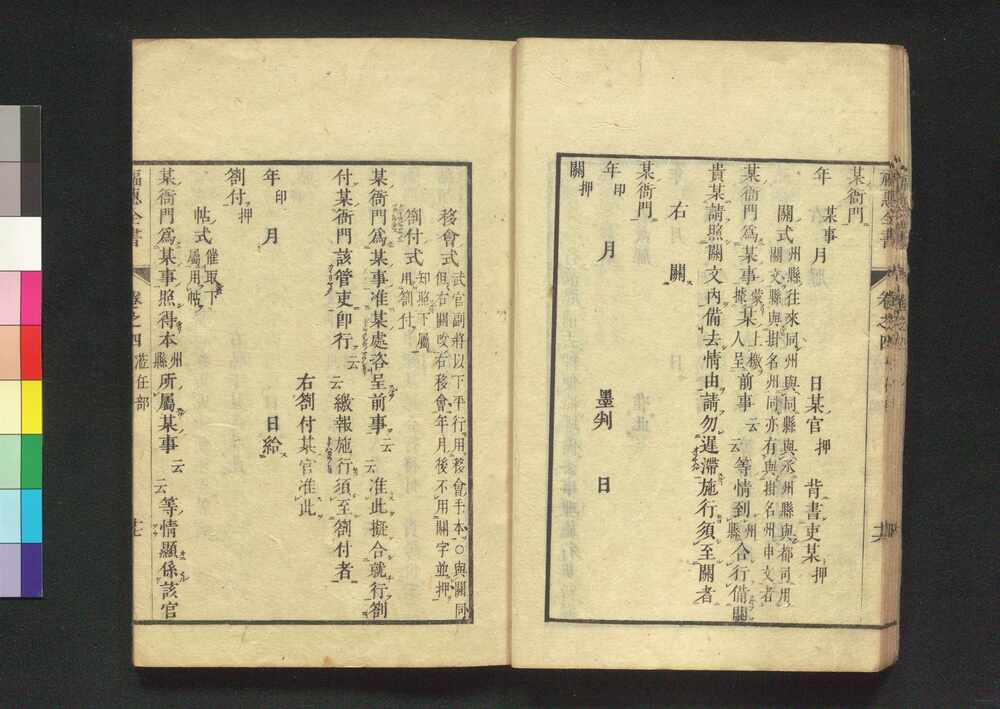 福惠全書 卷之四
某衙門
某事
年 月 日某官 押 背書吏某 押
關式 州縣往來同州與同縣與丞州縣與都司用
關文縣與掛名州同亦有與掛名州申文者
某衙門爲某事據某人呈前事云云等情到州縣合行備關
蒙上檄
貴某請照關文內備去情由請勿遲滯施行須至關者
右關
某衙門
年 印 月 墨判 日
關 押
移會式 武官副將以下平行用移會手本〇與關同
但右關改右移會年月後不用關字並押
劄付式 知照下屬
用劄付
某衙門爲某事准某處咨呈前事云云准此擬合就行劄
付某衙門該管吏卽行云云繳報施行須至劄付者
右劄付某官准此
年 印 月 日給
劄付 押
帖式 催取下
屬用帖
某衙門爲某事照得本州縣所屬某事云云等情顯係該官
福惠全書 卷之四 蒞任部 廿七